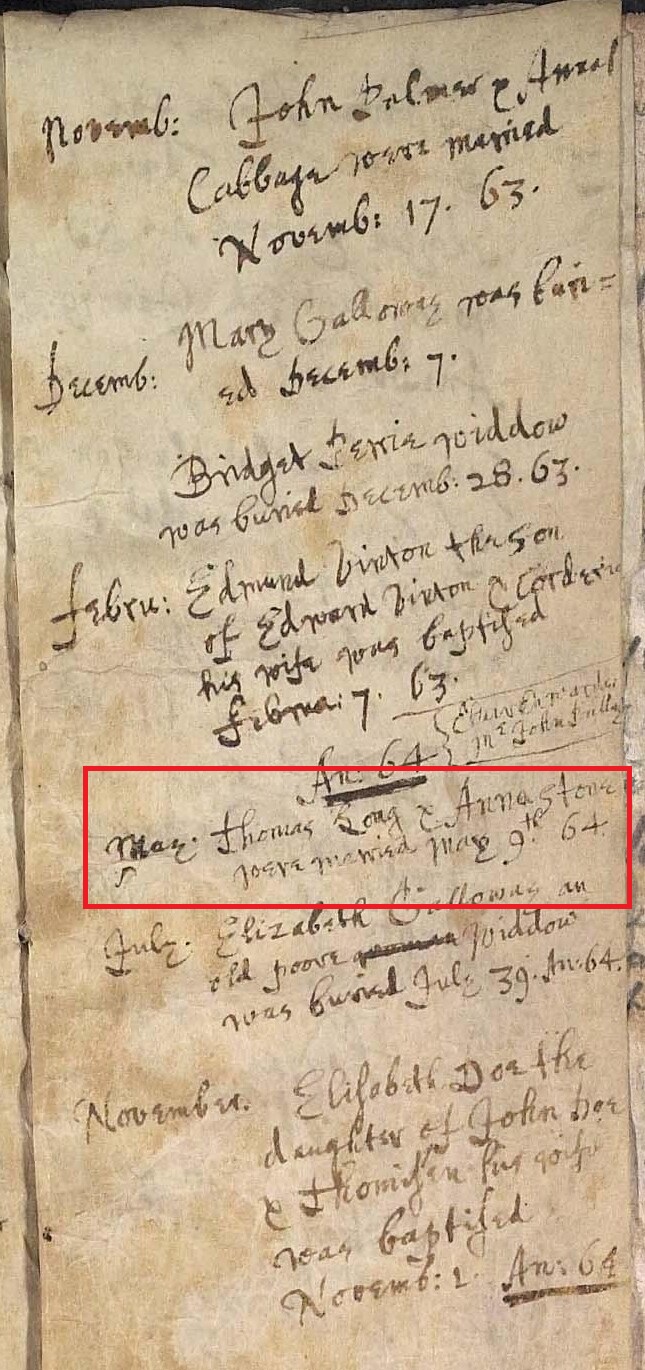 Novemb: John Palmer & Annal
Cabbage were married
Novemb: 17. 63.
Mary Galloway was buri=
Decemb: ed Decemb: 7.
Bridget Perrie widdow
was buried Decemb: 28. 63.
Febru: Edmund Vinton the son
of Edward Vinton &
his wife was baptised
Februa: 7. 63.
An: 64
Mr John
May. Thomas Long & Anna Stone
were married May 9th 64.
July. Elizabeth Gallowas an
old poore widdow
was buried July 39. An: 64.
November. Elisabeth Doe the
daughter of John Doe
& Thomisen his wife
was baptised
Novemb: 2. An: 64